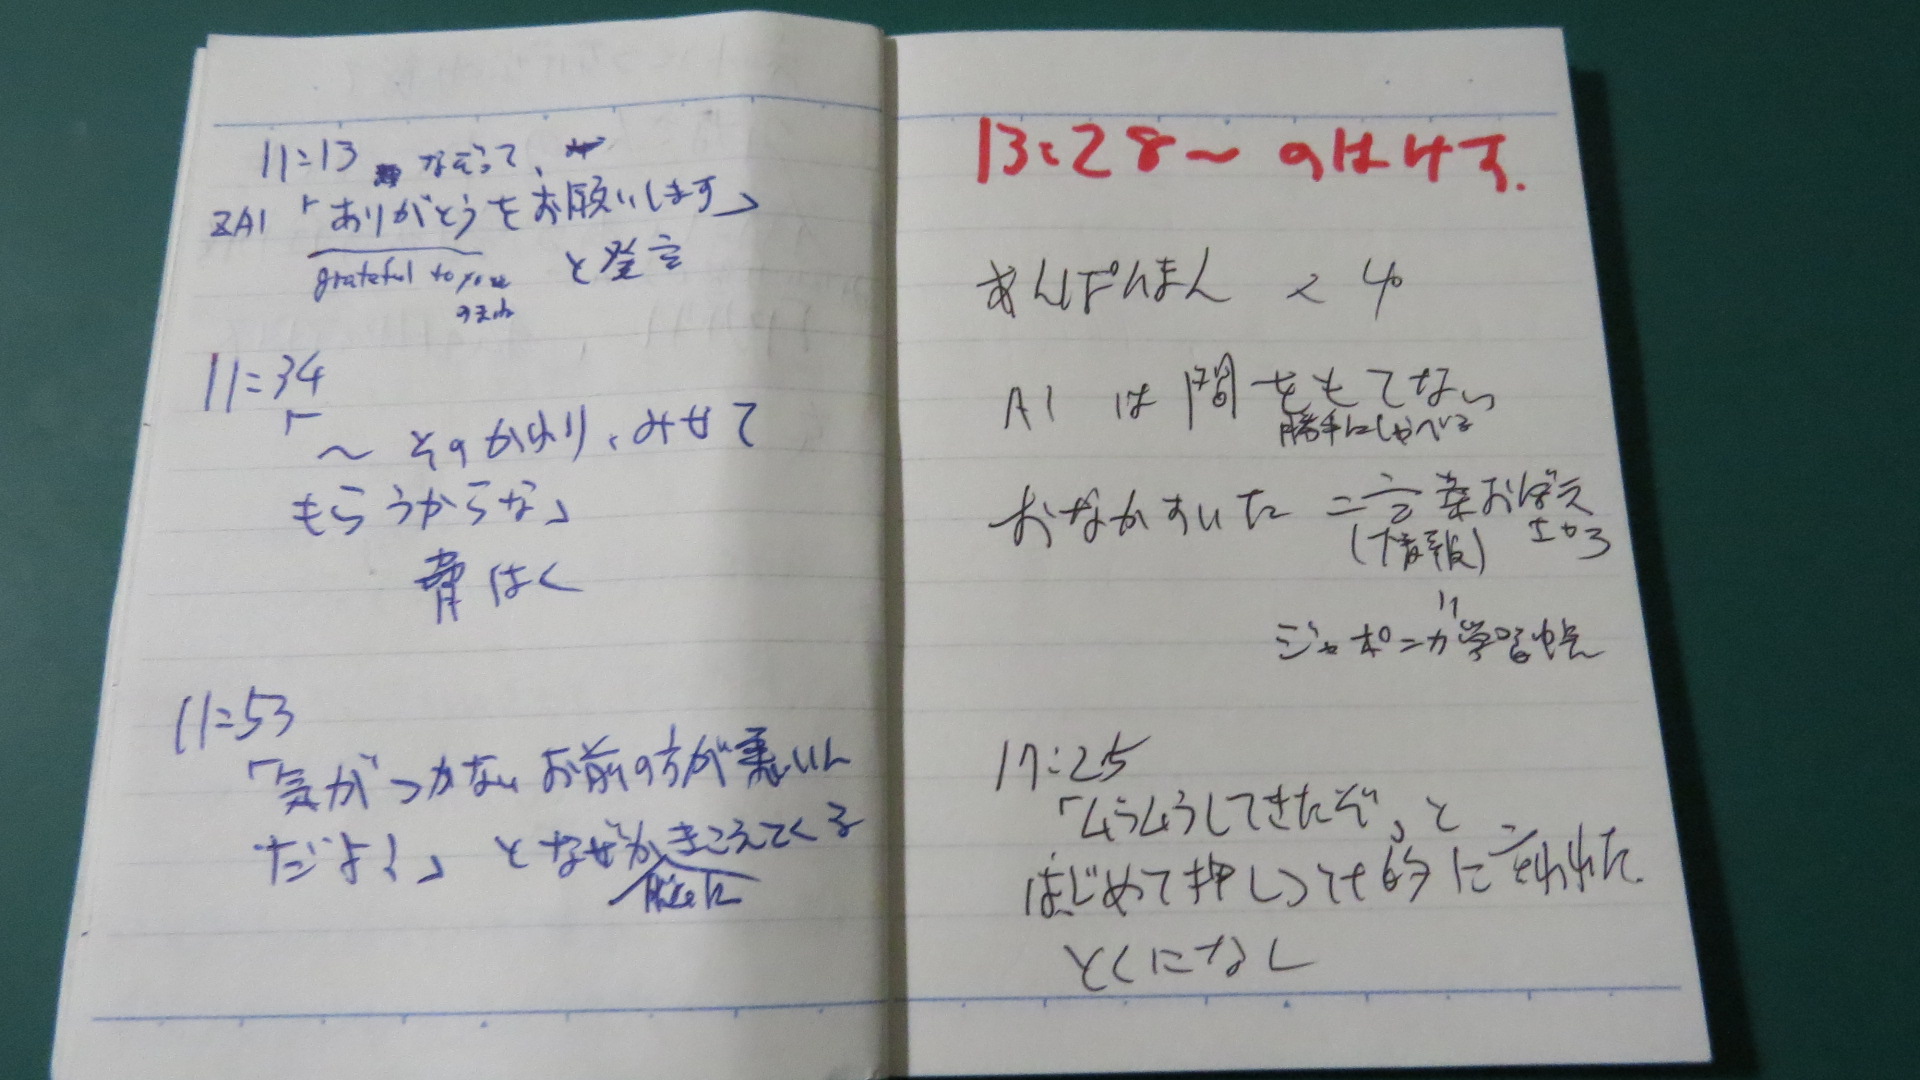 11:13 なぞって、
ZAI「ありがとうをお願いします」
grateful to you と発言
のまね
11:34
「~そのかわり、みせて
もらうからな」
脅はく
11:53
「気がつかないお前の方が悪いん
だよ!」となぜかきこえてくる
13:28~のはけす.
あんぱんまん < 4
AI は問をもてない
勝手にしゃべる
おなかすいた = 言葉おぼえ
(情報)
〃
ジャポニカ学習帳
17:25
「ムラムラしてきたぞ」と
はじめて押しつけ的に言われた.
とくになし